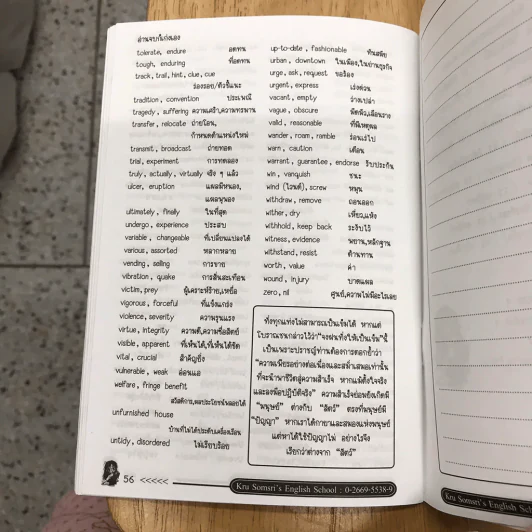 อ่านจบก็เก่งเอง
tolerate, endure อดทน
tough, enduring ที่อดทน
track, trail, hint, clue, cue
ร่องรอย/ตัวชี้แนะ
tradition, convention ประเพณี
tragedy, suffering ความเศร้า,ความทรมาน
transfer, relocate ย้ายโอน,
กำหนดตำแหน่งใหม่
transmit, broadcast ถ่ายทอด
trial, experiment การทดลอง
truly, actually, virtually จริง ๆ แล้ว
ulcer, eruption แผลมีหนอง,
แผลพุพอง
ultimately, finally ในที่สุด
undergo, experience ประสบ
variable, changeable ที่เปลี่ยนแปลงได้
various, assorted หลากหลาย
vending, selling การขาย
vibration, quake การสั่นสะเทือน
victim, prey ผู้เคราะห์ร้าย,เหยื่อ
vigorous, forceful ที่แข็งแกร่ง
violence, severity ความรุนแรง
virtue, integrity ความดี,ความซื่อสัตย์
visible, apparent ที่เห็นได้,ที่เห็นได้ชัด
vital, crucial สำคัญยิ่ง
vulnerable, weak อ่อนแอ
welfare, fringe benefit
สวัสดิการ,ผลประโยชน์พลอยได้
unfurnished house
บ้านที่ไม่ได้ประดับเครื่องเรือน
untidy, disordered ไม่เรียบร้อย
up-to-date, fashionable ทันสมัย
urban, downtown ในเมือง,ในย่านธุรกิจ
urge, ask, request ขอร้อง
urgent, express เร่งด่วน
vacant, empty ว่างเปล่า
vague, obscure มืดมัว,เลือนราง
valid, reasonable ที่มีเหตุผล
wander, roam, ramble ร่อนเร่ไป
warn, caution เตือน
warrant, guarantee, endorse รับประกัน
win, vanquish ชนะ
wind (ไวนด์), screw หมุน
withdraw, remove ถอนออก
wither, dry เหี่ยว,แห้ง
withhold, keep back ระงับไว้
witness, evidence พยาน,หลักฐาน
withstand, resist ต้านทาน
worth, value ค่า
wound, injury บาดแผล
zero, nil ศูนย์,ความไม่มีอะไรเลย
ทั่งทุกแท่งไม่สามารถเป็นเข็มได้ หากแต่
โบราณชนกล่าวไว้ว่า"จงฝนทั่งให้เป็นเข็ม"นี้
เป็นเพราะปราชญ์ท่านต้องการตอกย้ำว่า
"ความเพียรอย่างต่อเนื่องและสม่ำเสมอเท่านั้น
ที่จะนำพาชีวิตสู่ความสำเร็จ หากแม้ตั้งใจจริง
และลงมือปฏิบัติจริง" ความสำเร็จย่อมบังเกิดมี
"มนุษย์" ต่างกับ "สัตว์" ตรงที่มนุษย์มี
"ปัญญา" หากเราได้กายาและสมองแห่งมนุษย์
แต่หาได้ใช้ปัญญาไม่ อย่างไรจึง
เรียกว่าต่างจาก "สัตว์"
56 <<<<<
Kru Somsri's English School : 0-2669-5538-9